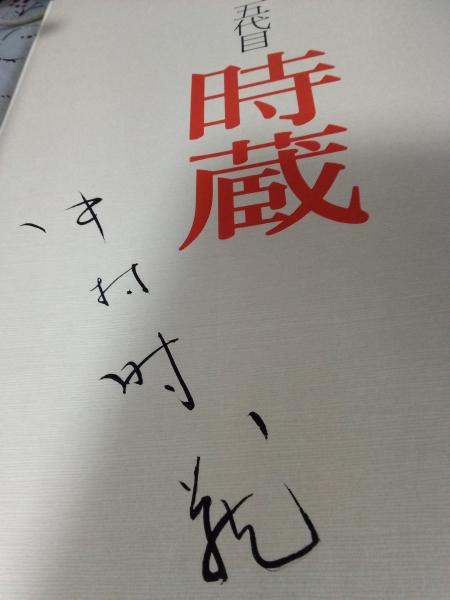 五代目
時蔵
中村時蔵